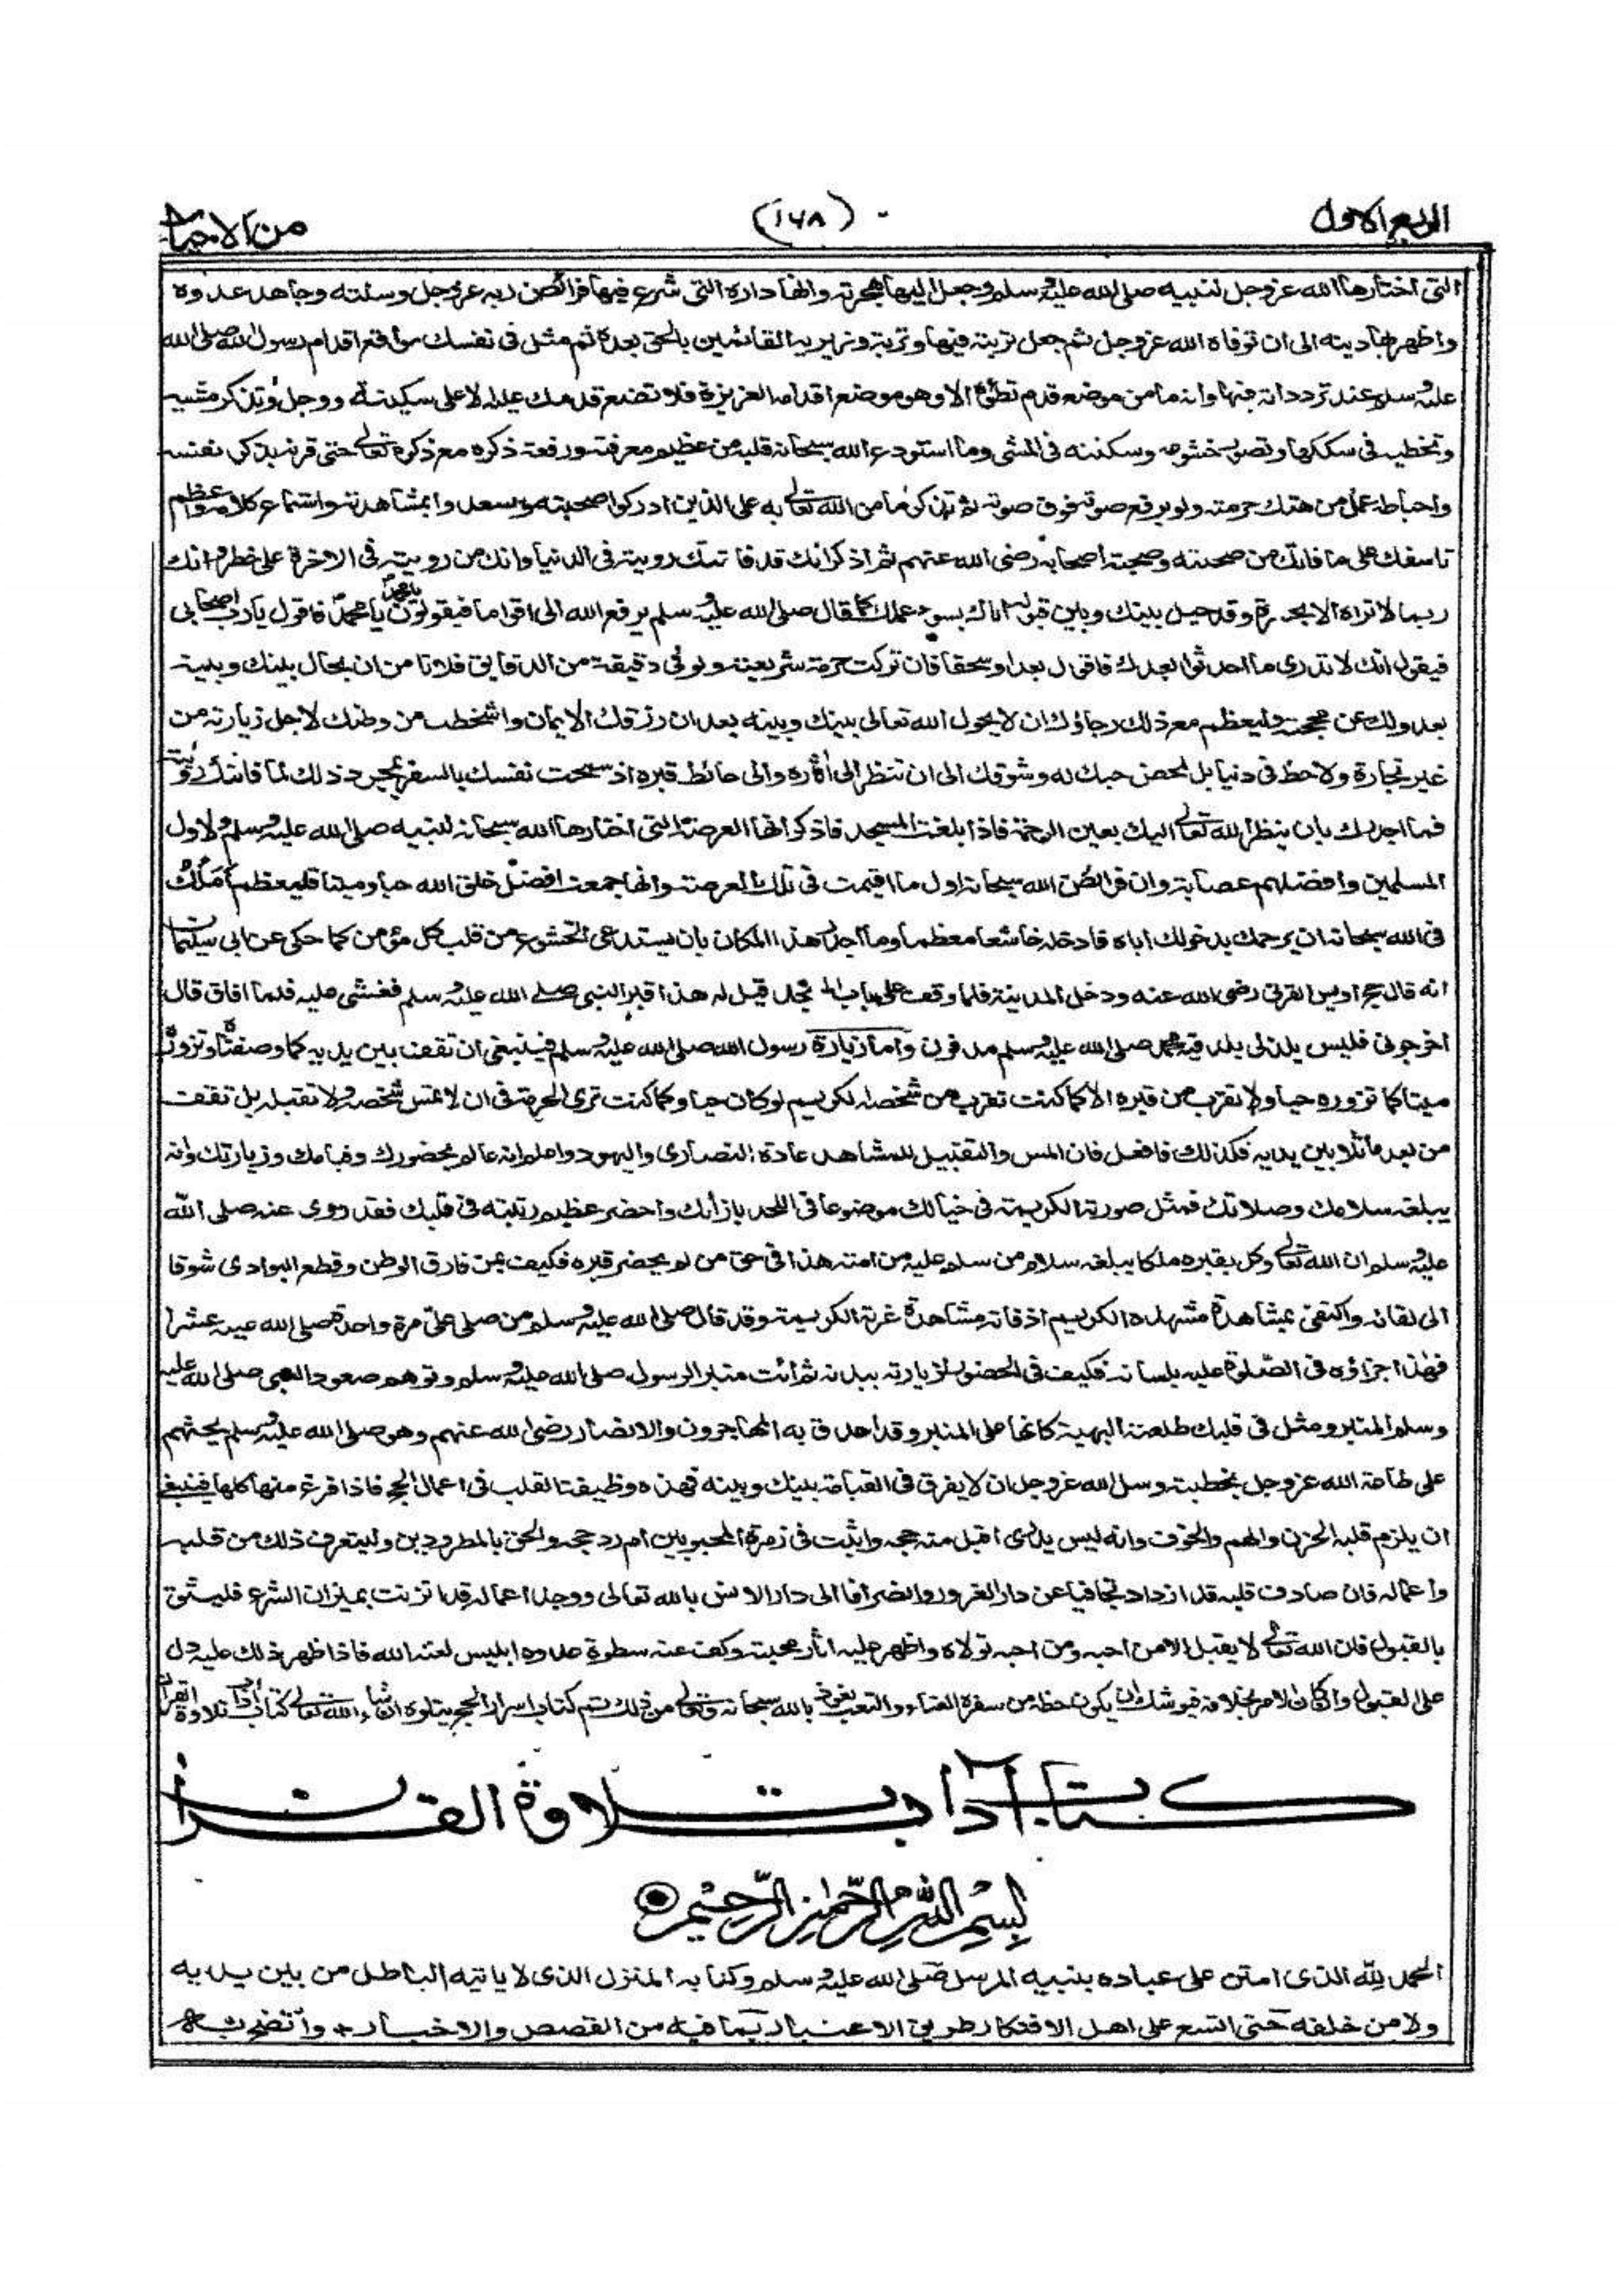 الربع الاول (١٦٨) من الاحياء
التى اختارها الله عز وجل لنبيه صلى الله عليه وسلم وجعل اليها هجرته وانها داره التى شرع فيها فرائض ربه عز وجل وسنته وجاهد عدوه
واظهر بها دينه الى ان توفاه الله عز وجل ثم جعل تربته فيها وتربة وزيريه القائمين بالحق بعده ثم مثل فى نفسك مواقع اقدام رسول الله صلى الله
عليه وسلم عند تردداته فيها وانه ما من موضع قدم تطؤه الا وهو موضع اقدامه العزيزة فلا تضع قدمك عليه الا على سكينة ووجل وتذكر مشيه
وتخطيه فى سككها وتصور خشوعه وسكينته فى المشى وما استودع الله سبحانه قلبه من عظيم معرفته ورفعة ذكره مع ذكره تعالى حتى قرنه بذكر نفسه
واحباطه عمل من هتك حرمته ولو برفع صوته فوق صوته ثم تذكر ما من الله تعالى به على الذين ادركوا صحبته وسعدوا بمشاهدته واستماع كلامه واعظم
تاسفك على ما فاتك من صحبته وصحبة اصحابه رضى الله عنهم ثم اذكر انك قد فاتتك رويته فى الدنيا وانك من رويته فى الاخرة على خطر وانك
ربما لا تراه الا بحسرة وقد حيل بينك وبين قبوله اياك بسوء عملك كما قال صلى الله عليه وسلم يرفع الله الى اقواما فيقولون يا محمد يا محمد فاقول يا رب اصحابى
فيقول انك لا تدرى ما احدثوا بعدك فاقول بعدا وسحقا فان تركت حرمة شريعته ولو فى دقيقة من الدقايق فلا تامن ان يحال بينك وبينه
بعدولك عن محجته وليعظم مع ذلك رجاؤك ان لا يحول الله تعالى بينك وبينه بعد ان رزقك الايمان واشخصك من وطنك لاجل زيارته من
غير تجارة ولا حظ فى دنيا بل لمحض حبك له وشوقك الى ان تنظر الى اثاره والى حائط قبره اذ سمحت نفسك بالسفر بمجرد ذلك لما فاتتك رؤيته
فما اجدرك بان ينظر الله تعالى اليك بعين الرحمة فاذا بلغت المسجد فاذكر انها العرصة التى اختارها الله سبحانه لنبيه صلى الله عليه وسلم ولاول
المسلمين وافضلهم عصابة وان فرائض الله سبحانه اول ما اقيمت فى تلك العرصة وانها جمعت افضل خلق الله حيا وميتا فليعظم املك
فى الله سبحانه ان يرحمك بدخولك اياه فادخله خاشعا معظما وما اجدر هذا المكان بان يستدعى الخشوع من قلب كل مؤمن كما حكى عن ابى سليمان
انه قال حج اويس القرنى رضى الله عنه ودخل المدينة فلما وقف على باب المسجد قيل له هذا قبر النبى صلى الله عليه وسلم فغشى عليه فلما افاق قال
اخرجونى فليس يلذ لى بلد فيه محمد صلى الله عليه وسلم مدفون واما زيارة رسول الله صلى الله عليه وسلم فينبغى ان تقف بين يديه كما وصفنا وتزوره
ميتا كما تزوره حيا ولا تقرب من قبره الا كما كنت تقرب من شخصه الكريم لو كان حيا وكما كنت ترى الحرمة فى ان لا تمس شخصه ولا تقبله بل تقف
من بعد ماثلا بين يديه فكذلك فافعل فان المس والتقبيل للمشاهد عادة النصارى واليهود واعلم انه عالم بحضورك وقيامك وزيارتك وانه
يبلغه سلامك وصلاتك فمثل صورته الكريمة فى خيالك موضوعا فى اللحد بازائك واحضر عظيم رتبته فى قلبك فقد روى عنه صلى الله
عليه وسلم ان الله تعالى وكل بقبره ملكا يبلغه سلام من سلم عليه من امته هذا فى حق من لم يحضر قبره فكيف بمن فارق الوطن وقطع البوادى شوقا
الى لقائه واكتفى بمشاهدة مشهده الكريم اذ فاته مشاهدة غرته الكريمة وقد قال صلى الله عليه وسلم من صلى على مرة واحدة صلى الله عليه عشرا
فهذا جزاؤه فى الصلوة عليه بلسانه فكيف فى الحضور لزيارته ببدنه ثم ائت منبر الرسول صلى الله عليه وسلم وتوهم صعود النبى صلى الله عليه
وسلم المنبر ومثل فى قلبك طلعته البهية كانها على المنبر وقد احدق به المهاجرون والانصار رضى الله عنهم وهو صلى الله عليه وسلم يحثهم
على طاعة الله عز وجل بخطبته وسل الله عز وجل ان لا يفرق فى القيامة بينك وبينه فهذه وظيفة القلب فى اعمال الحج فاذا فرغ منها كلها فينبغى
ان يلزم قلبه الحزن والهم والخوف وانه ليس يدرى اقبل منه حجه واثبت فى زمرة المحبوبين ام رد حجه والحق بالمطرودين وليتعرف ذلك من قلبه
واعماله فان صادف قلبه قد ازداد تجافيا عن دار الغرور وانصرافا الى دار الانس بالله تعالى ووجد اعماله قد اتزنت بميزان الشرع فليثق
بالقبول فان الله تعالى لا يقبل الا من احبه ومن احبه تولاه واظهر عليه اثار محبته وكف عنه سطوة عدوه ابليس لعنه الله فاذا ظهر ذلك عليه دل
على القبول وان كان الامر بخلافه فيوشك ان يكون حظه من سفره العناء والتعب نعوذ بالله سبحانه وتعالى من ذلك تم كتاب اسرار الحج يتلوه ان شاء الله تعالى كتاب اداب تلاوة القران
كتاب آداب تلاوة القران
بسم الله الرحمن الرحيم
الحمد لله الذى امتن على عباده بنبيه المرسل صلى الله عليه وسلم وكتابه المنزل الذى لا ياتيه الباطل من بين يديه
ولا من خلفه حتى اتسع على اهل الافتكار طريق الاعتبار بما فيه من القصص والاخبار واتضح به